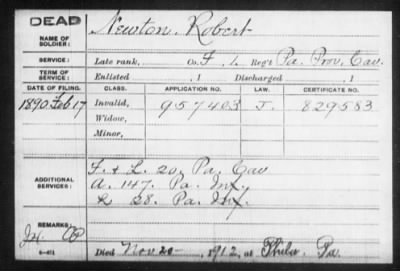 DEAD
NAME OF SOLDIER: Newton, Robert
SERVICE: Late rank, Co. F, 1, Reg't Pa. Prov. Cav.
TERM OF SERVICE: Enlisted , 1 Discharged , 1
DATE OF FILING. CLASS. APPLICATION NO. LAW. CERTIFICATE NO.
1890 Feb 17 Invalid, 957403 J. 829583
Widow,
Minor,
F. & L. 20, Pa. Cav
ADDITIONAL SERVICES: A. 147. Pa. Inf.
& 28. Pa. Inf.
REMARKS:
Died Nov 20 , 1912, at Phila. Pa.